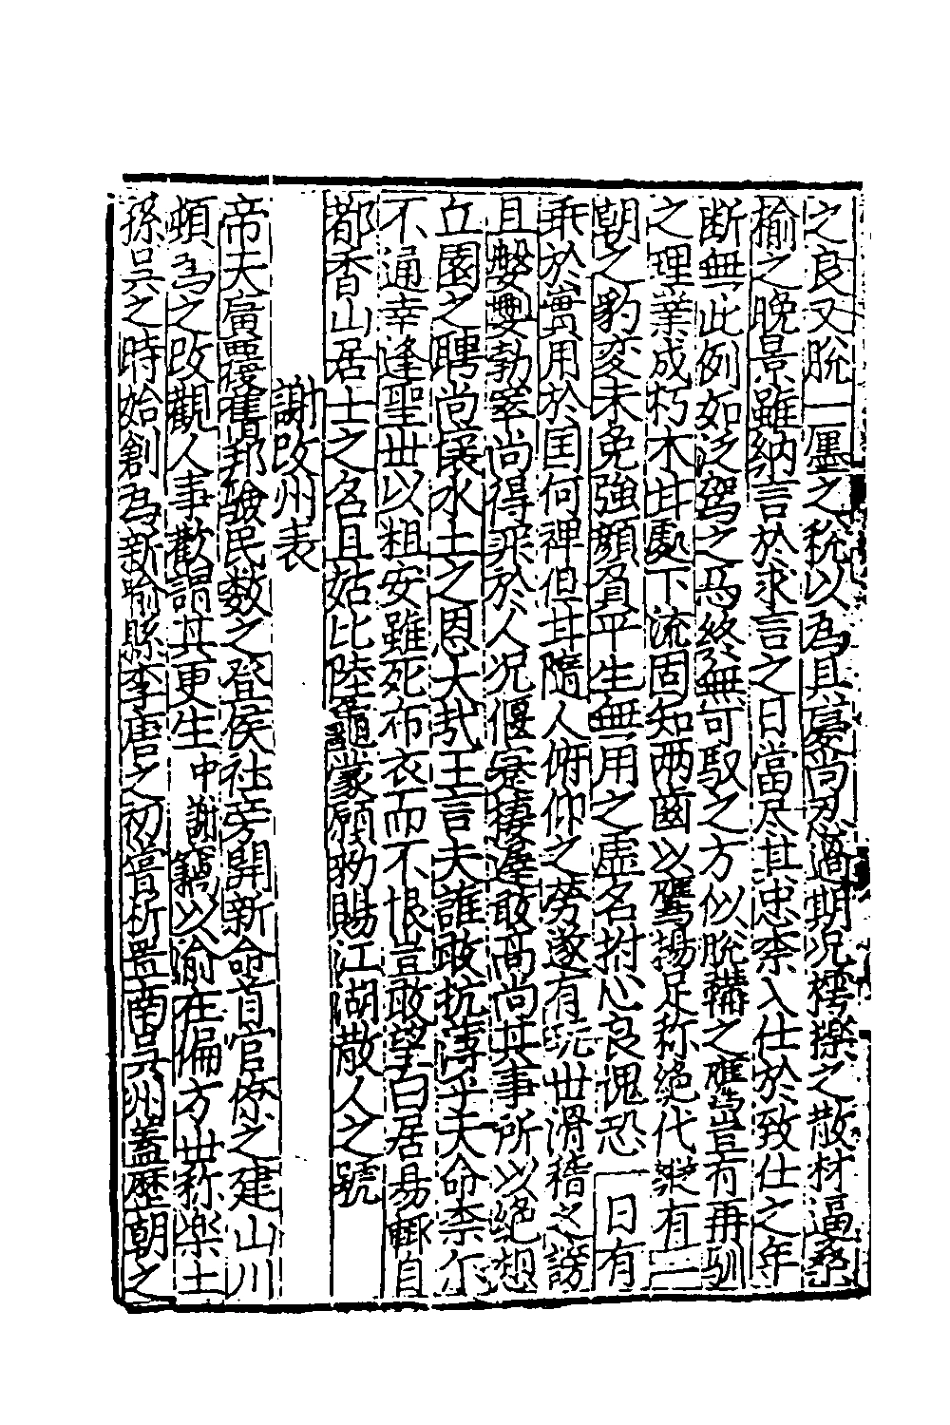 之良又脫一廛之稅以為具憂尚忍過期况樗櫟之散材逼桑
榆之晚景雖納言於求言之日當尽其忠柰入仕於致仕之年
断無此例如泛駕之马終無可馭之方似脫韝之鷹豈有再馴
之理業成朽木甘處下流固知两齒以鷹揚足称絕代欒有一
朝之豹变未免強顔負平生無用之虛名拊心良愧恐一日有
乖於實用於国何裨但甘隨人俯仰之勞遂有玩世滑稽之謗
且媻㜑勃窣尚得罪於人况偃蹇棲遲敢高尚其事所以絕想
丘園之聘尚懷水土之恩大㢤王言夫誰敢抗淳乎夫命柰尓
不通幸逢聖世以粗安雖死布衣而不恨豈敢望白居易輒自
都香山居士之名且姑比陸龜蒙願勑賜江湖散人之號
謝改州表
帝夫廣覆舊邦驗民数之登侯社旁開新命首官僚之建山川
頓為之改觀人事歡謂其更生中謝竊以喻在偏方世称楽土
孫吳之時始創為新喻縣李唐之初嘗析置南吳州蓋歷朝之